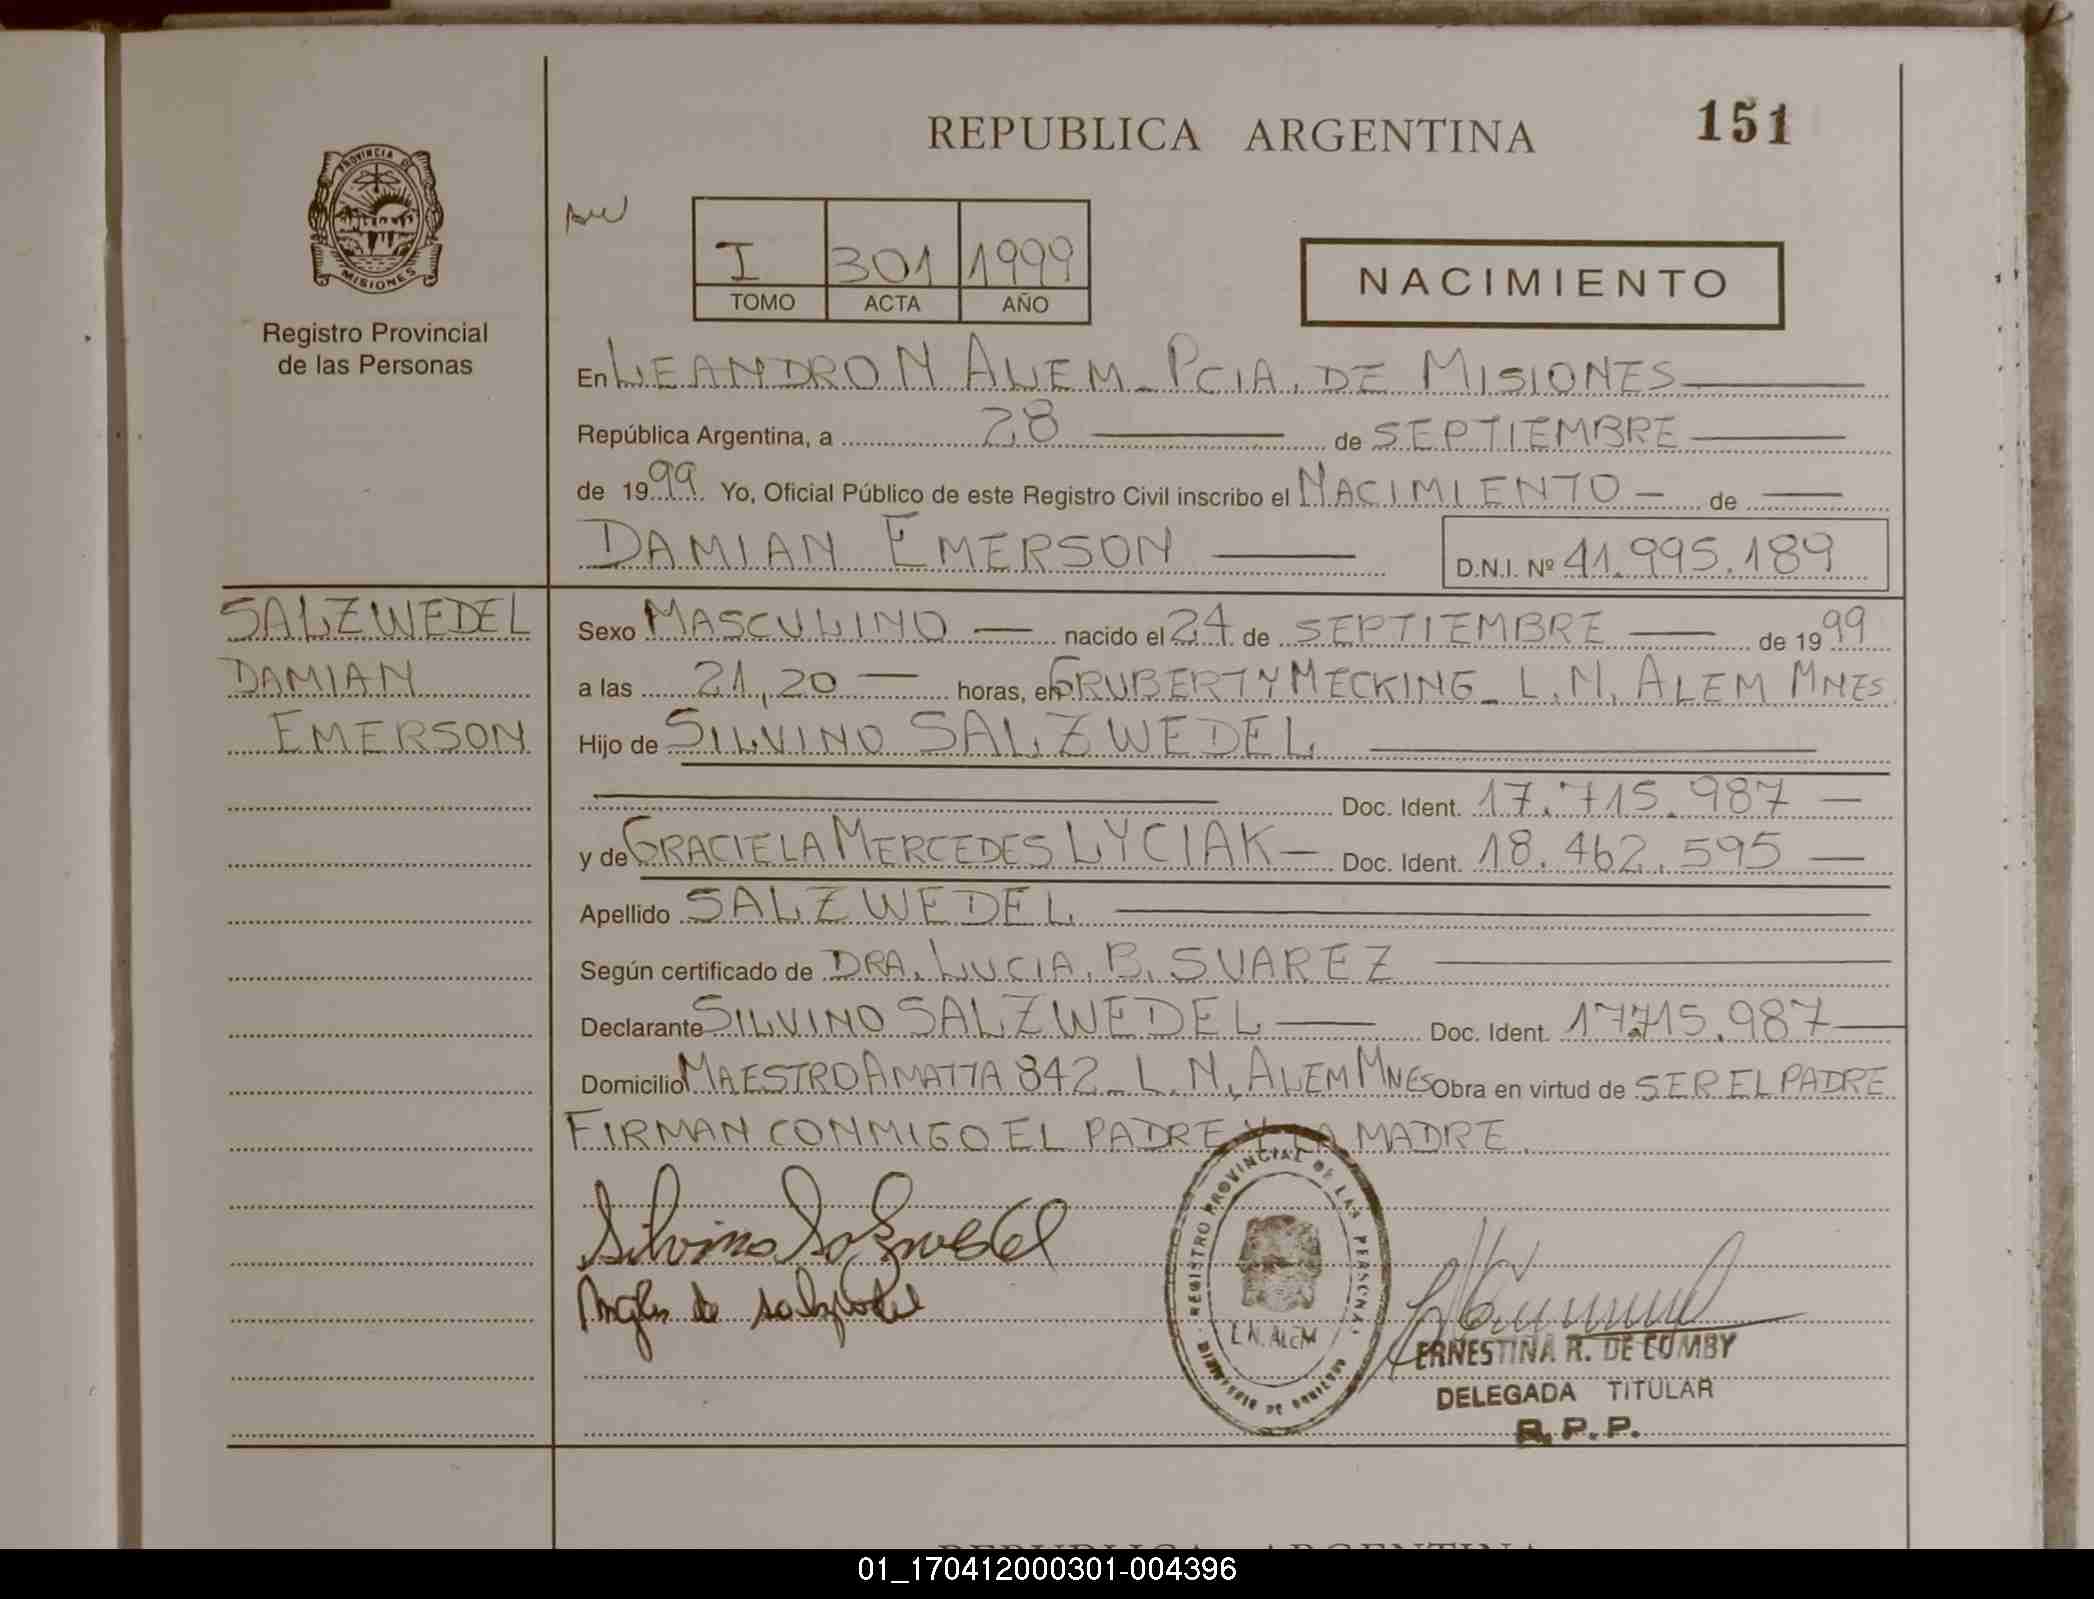 REPUBLICA ARGENTINA
151
PROVINCIA DE
MISIONES
Registro Provincial
de las Personas
I 301 1999
TOMO ACTA AÑO
NACIMIENTO
En LEANDRO N ALEM - PCIA. DE MISIONES
República Argentina, a 28 de SEPTIEMBRE
de 1999 Yo, Oficial Público de este Registro Civil inscribo el NACIMIENTO - de
DAMIAN EMERSON D.N.I. Nº 41.995.189
SALZWEDEL
DAMIAN
EMERSON
Sexo MASCULINO nacido el 24 de SEPTIEMBRE de 1999
a las 21,20 horas, en GRUBERT Y MECKING - L. N. ALEM MNES
Hijo de SILVINO SALZWEDEL
Doc. Ident. 17.715.987
y de GRACIELA MERCEDES LYCIAK - Doc. Ident. 18.462.595
Apellido SALZWEDEL
Según certificado de DRA. LUCIA. B. SUAREZ
Declarante SILVINO SALZWEDEL Doc. Ident. 17.715.987
Domicilio MAESTRO AMATTA 842 - L. N. ALEM MNES Obra en virtud de SER EL PADRE
FIRMAN CONMIGO EL PADRE Y LA MADRE.
Silvino Salzwedel
de Salzwedel
REGISTRO PROVINCIAL DE LAS PERSONAS
L.N. ALEM
ERNESTINA R. DE COMBY
DELEGADA TITULAR
R.P.P.
REPUBLICA ARGENTINA
01_170412000301-004396